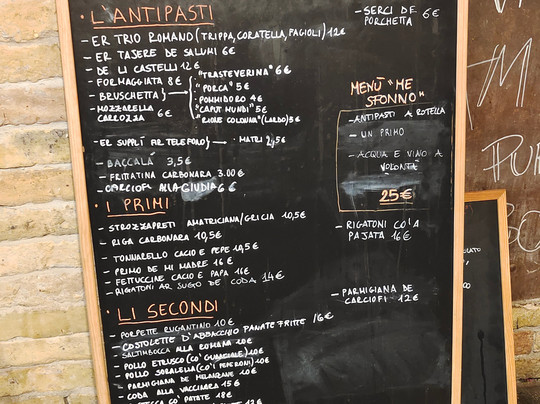 • L'ANTIPASTI
- ER TRIO ROMANO (TRIPPA, CORATELLA, FAGIOLI) 12€
- ER TAJERE DE SALUMI 6€
- DE LI CASTELLI 12€
- FORMAGGIATA 8€
- BRUSCHETTA
"TRASTEVERINA" 6€
"PORCA" 5€
"POMMIDORO 4€
"CAPUT MUNDI" 5€
"RIONE COLONNA" (LARDO) 5€
- MOZZARELLA CARROZZA 6€
- ER SUPPLÌ AR TELEFONO
MATRI 2,5€
- BACCALÀ 3,5€
- FRITTATINA CARBONARA 3.00€
- CARCIOFI ALLA GIUDIA 6€
• I PRIMI
- STROZZAPRETI AMATRICIANA/GRICIA 10,5€
- RIGA CARBONARA 10,5€
- TONNARELLO CACIO E PEPE 10,5€
- PRIMO DE MI MADRE 16€
- FETTUCCINE CACIO E PAPA 16€
- RIGATONI AR SUGO DE CODA 14€
• LI SECONDI
- PORPETTE RUGANTINO 10€
- COSTOLETTE D'ABBACCHIO PANATE FRITTE 16€
- SALTIMBOCCA ALLA ROMANA 10€
- POLLO ETRUSCO (CO' GUANCIALE) 10€
- POLLO SORALELLA (CO' I PEPERONI) 10€
- PARMIGIANA DE MELANZANE 10€
- CODA ALLA VACCINARA 15€
CO' PATATE 18€
12€
- SERCI DE PORCHETTA 6€
MENÙ "ME SFONNO"
- ANTIPASTI A ROTELLA
- UN PRIMO
- ACQUA E VINO A VOLONTÀ
25€
- RIGATONI CO' A PAJATA 16€
- PARMIGIANA DE CARCIOFI 12€